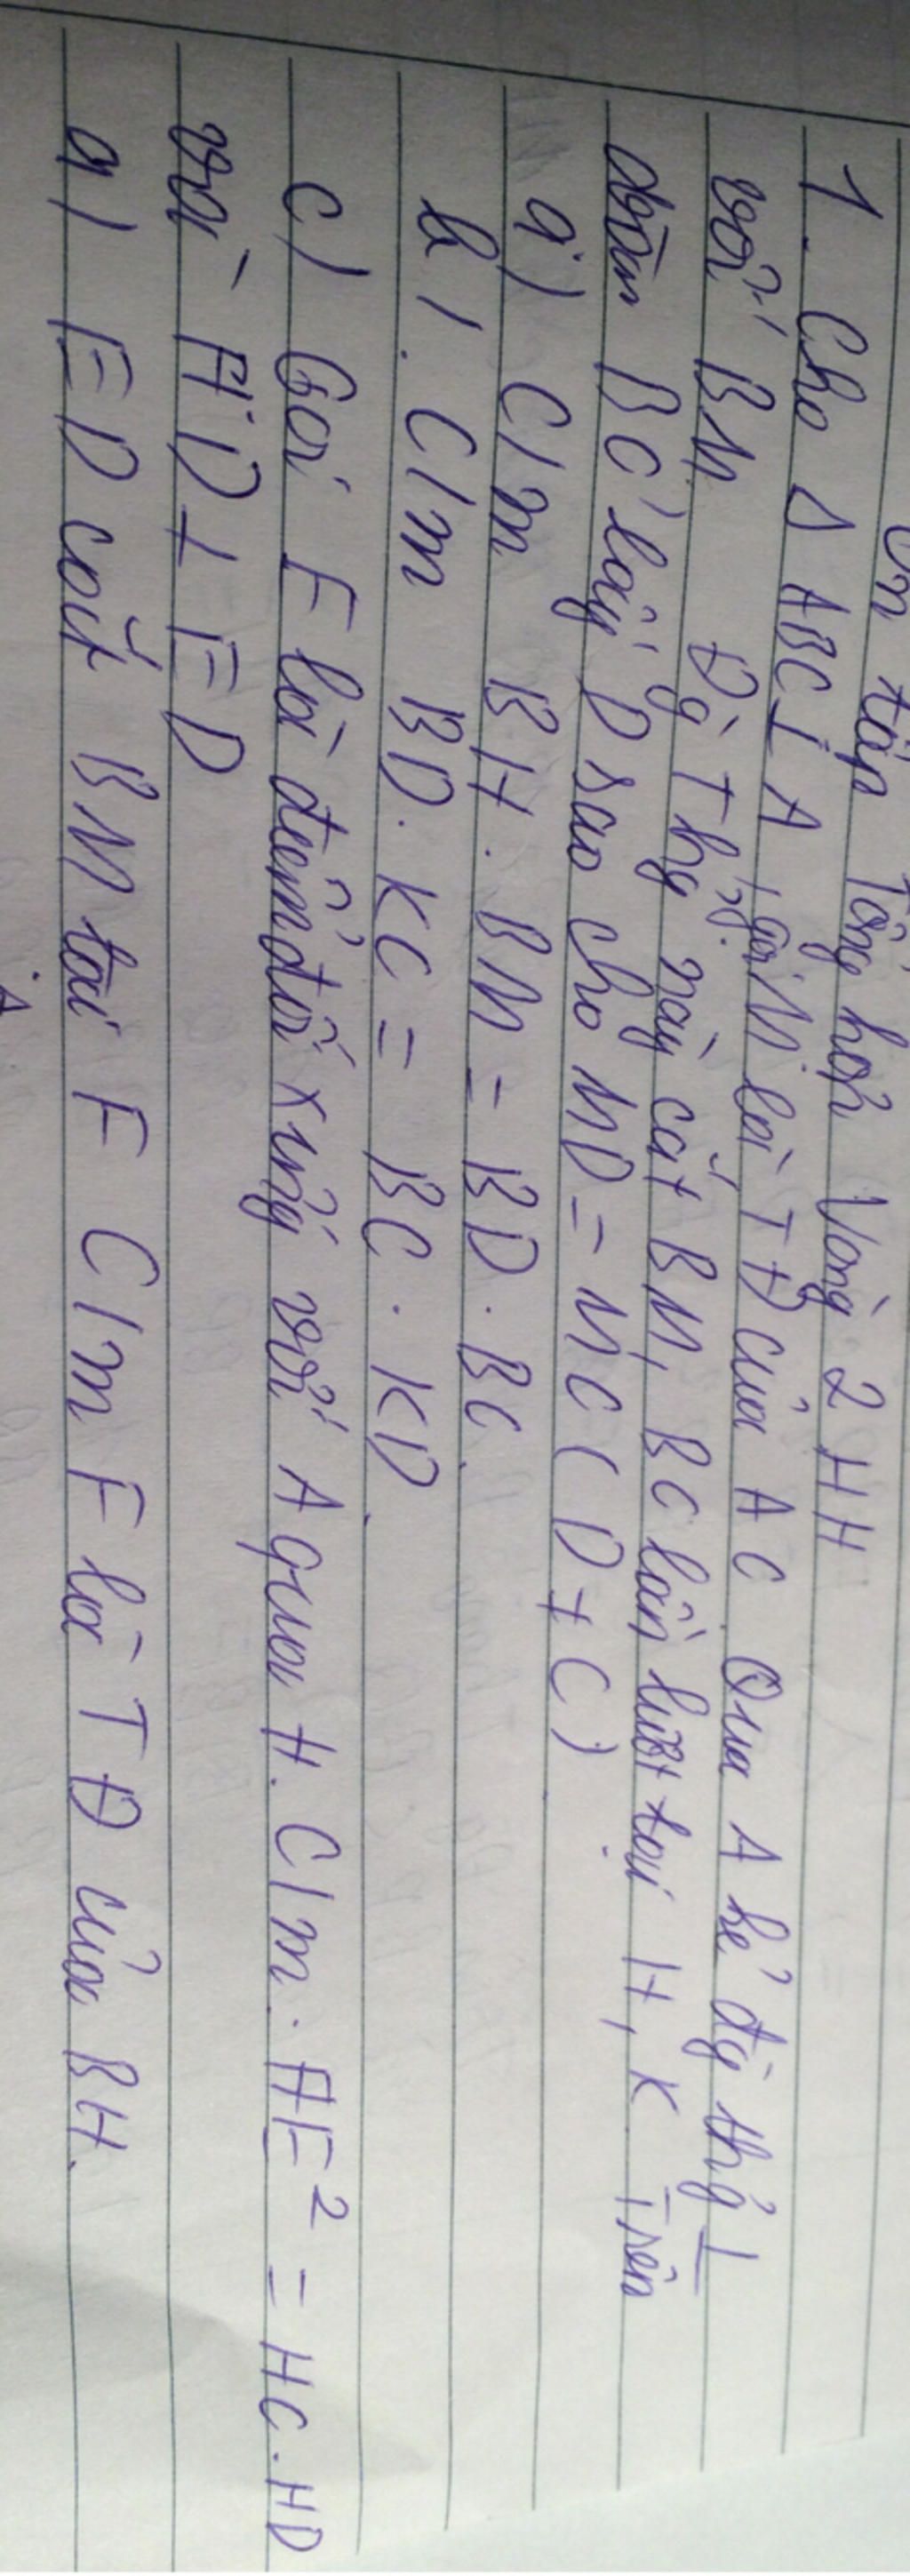 Ôn tập Tổng hợp Vòng 2 HH
1. Cho Δ ABC ⊥ A, gọi M là TĐ của AC. Qua A kẻ đg thg ⊥
với BM. Đg Thg này cắt BM, BC lần lượt tại H, K Trên
đoạn BC lấy D sao cho MD = MC (D ≠ C)
a) C/m BH. BM = BD. BC.
b). C/m BD. KC = BC. KD.
c) Gọi E là điểm đối xứng với A qua H. C/m. AE² = HC. HD
và AD ⊥ ED
a) ED cắt BM tại F C/m F là TĐ của BH.